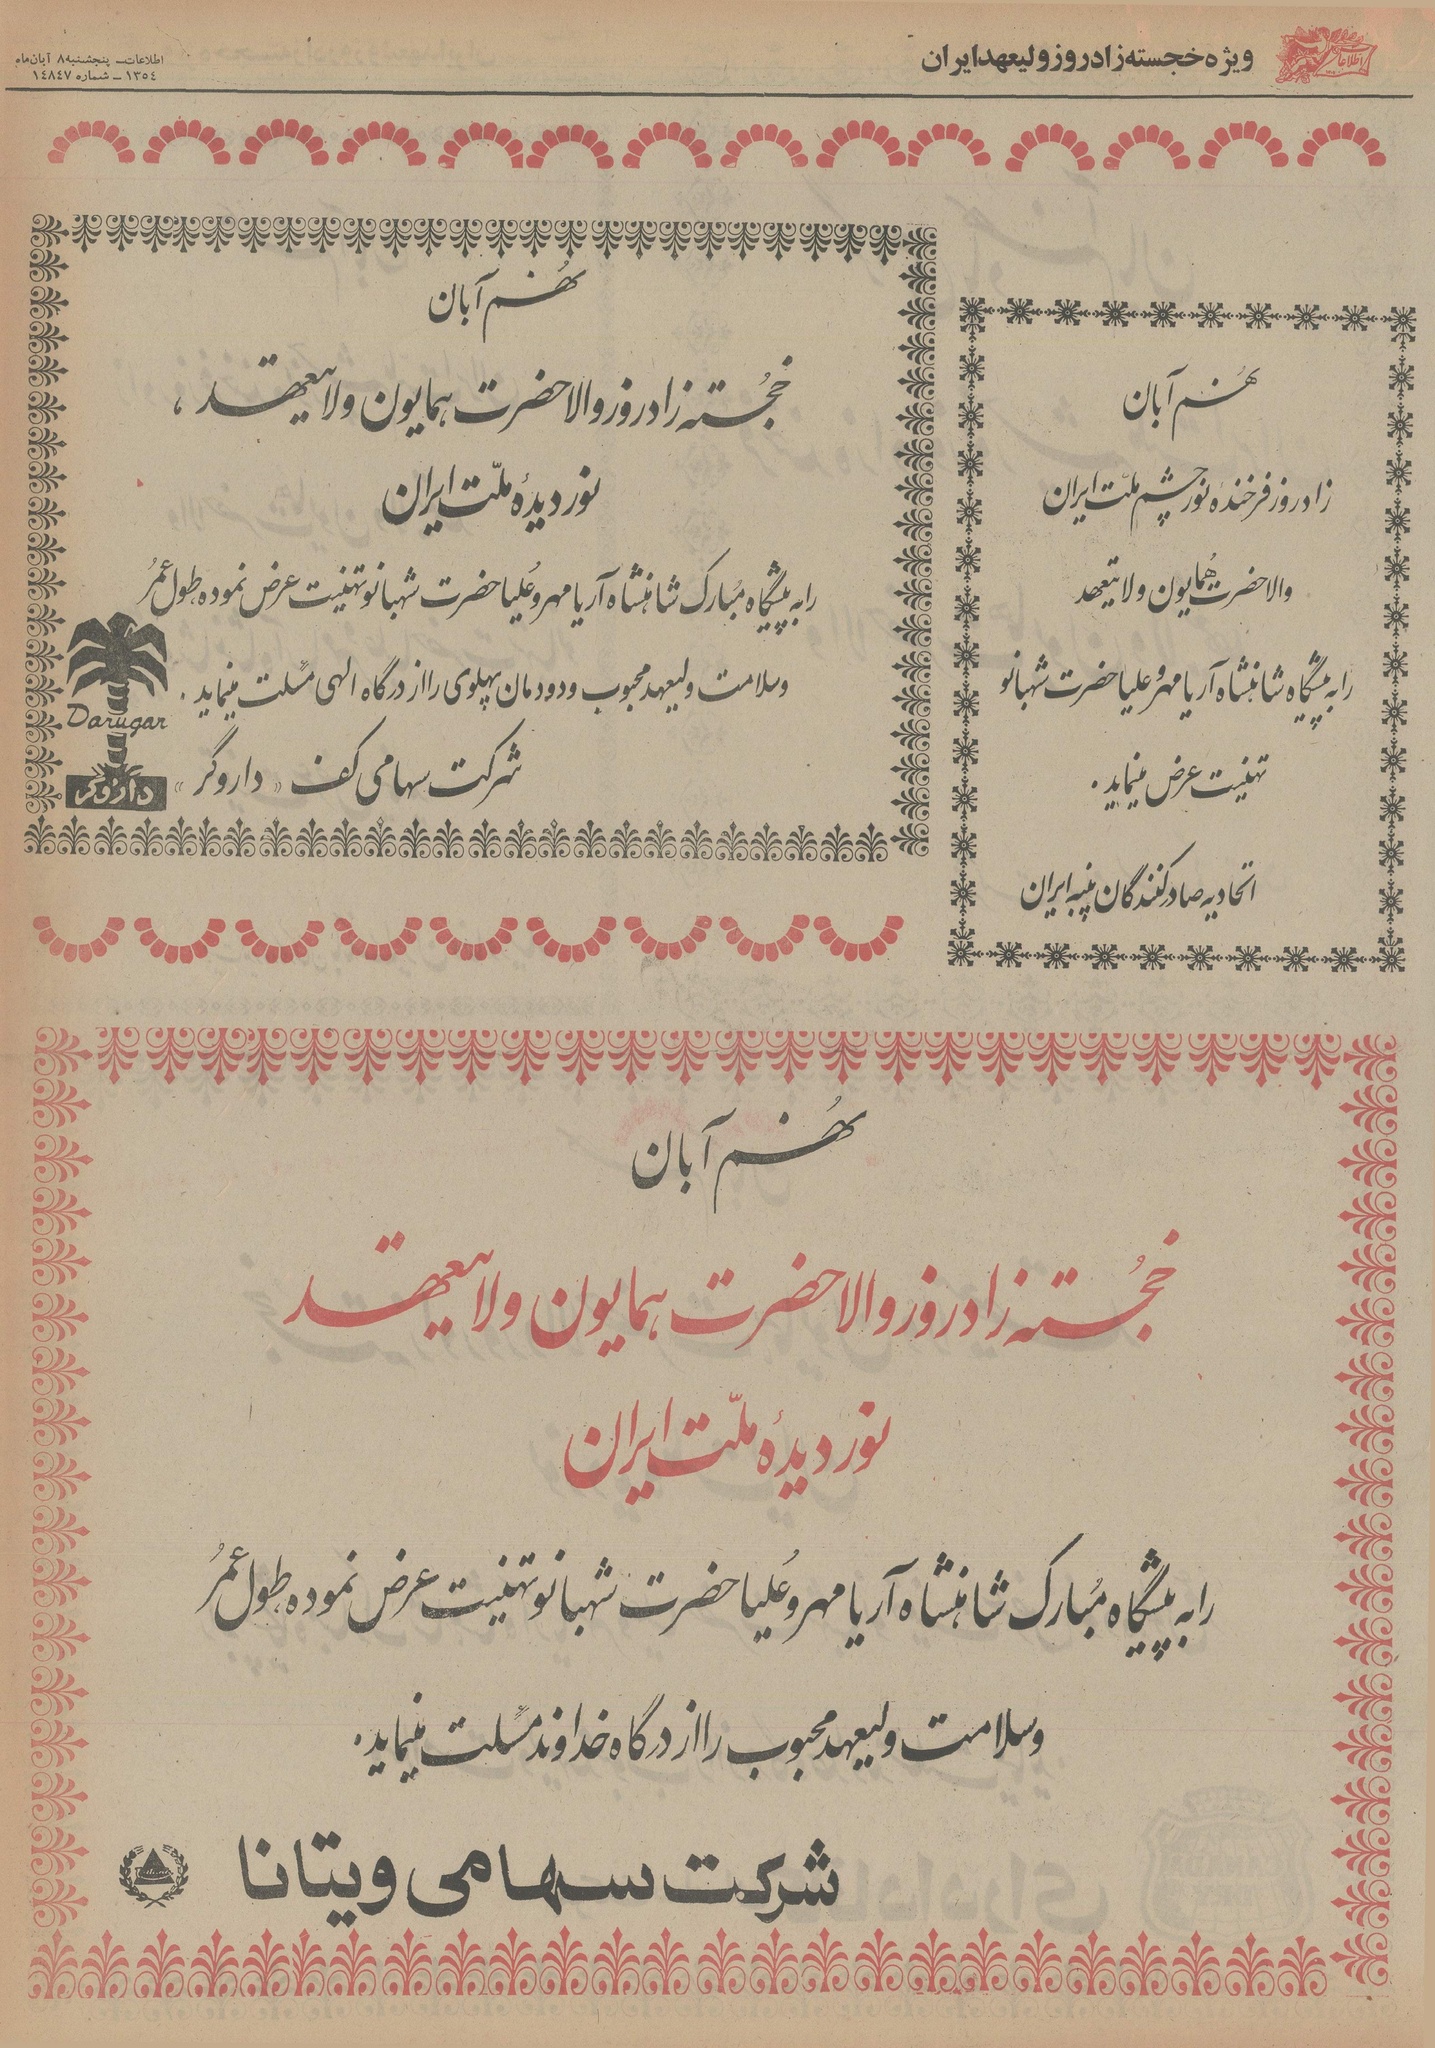 ویژه خجسته زادروز ولیعهد ایران
اطلاعات ـ پنجشنبه ۸ آبان ماه
۱۳۵۴ ـ شماره ۱۴۸۴۷
نهم آبان
زادروز فرخندهٔ نور چشم ملّت ایران
والاحضرت همایون ولایتعهد
را به پیشگاه شاهنشاه آریامهر و علیاحضرت شهبانو
تهنیت عرض مینماید.
اتحادیه صادرکنندگان پنبه ایران
نهُم آبان
خجُسته زادروز والاحضرت همایون ولایتعهد،
نور دیدهٔ ملّت ایران
را به پیشگاه مُبارک شاهنشاه آریامهر و عُلیاحضرت شهبانو تهنیت عرض نموده طول عمرُ
و سلامت ولیعهد محبوب و دودمان پهلوی را از درگاه الهی مسئلت مینماید.
شرکت سهامی کف «داروگر»
Darugar
داروگر
نهُم آبان
خجُسته زادروز والاحضرت همایون ولایتعهد
نور دیدهٔ ملّت ایران
را به پیشگاه مُبارک شاهنشاه آریامهر و عُلیاحضرت شهبانو تهنیت عرض نموده طول عمرُ
و سلامت ولیعهد محبوب را از درگاه خداوند مسئلت مینماید.
شرکت سهامی ویتانا